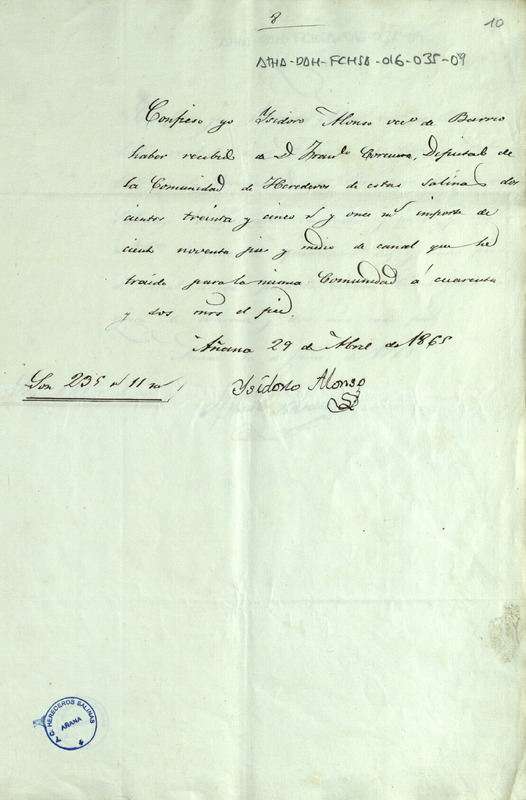 8
10
ATHA-DAH-FCHSA-016-035-09
Confieso yo Ysidoro Alonso vecº de Barrio
haber recibido de D. Franco Corcuera, Diputado de
la Comunidad de Herederos de estas salinas dos
cientos treinta y cinco rs y once ms importe de
ciento noventa pies y medio de canal que he
traido para la misma Comunidad á cuarenta
y dos mrs el pie.
Añana 29 de Abril de 1865
Son 235 rs 11 ms
Ysidoro Alonso
HEREDEROS SALINAS
AÑANA